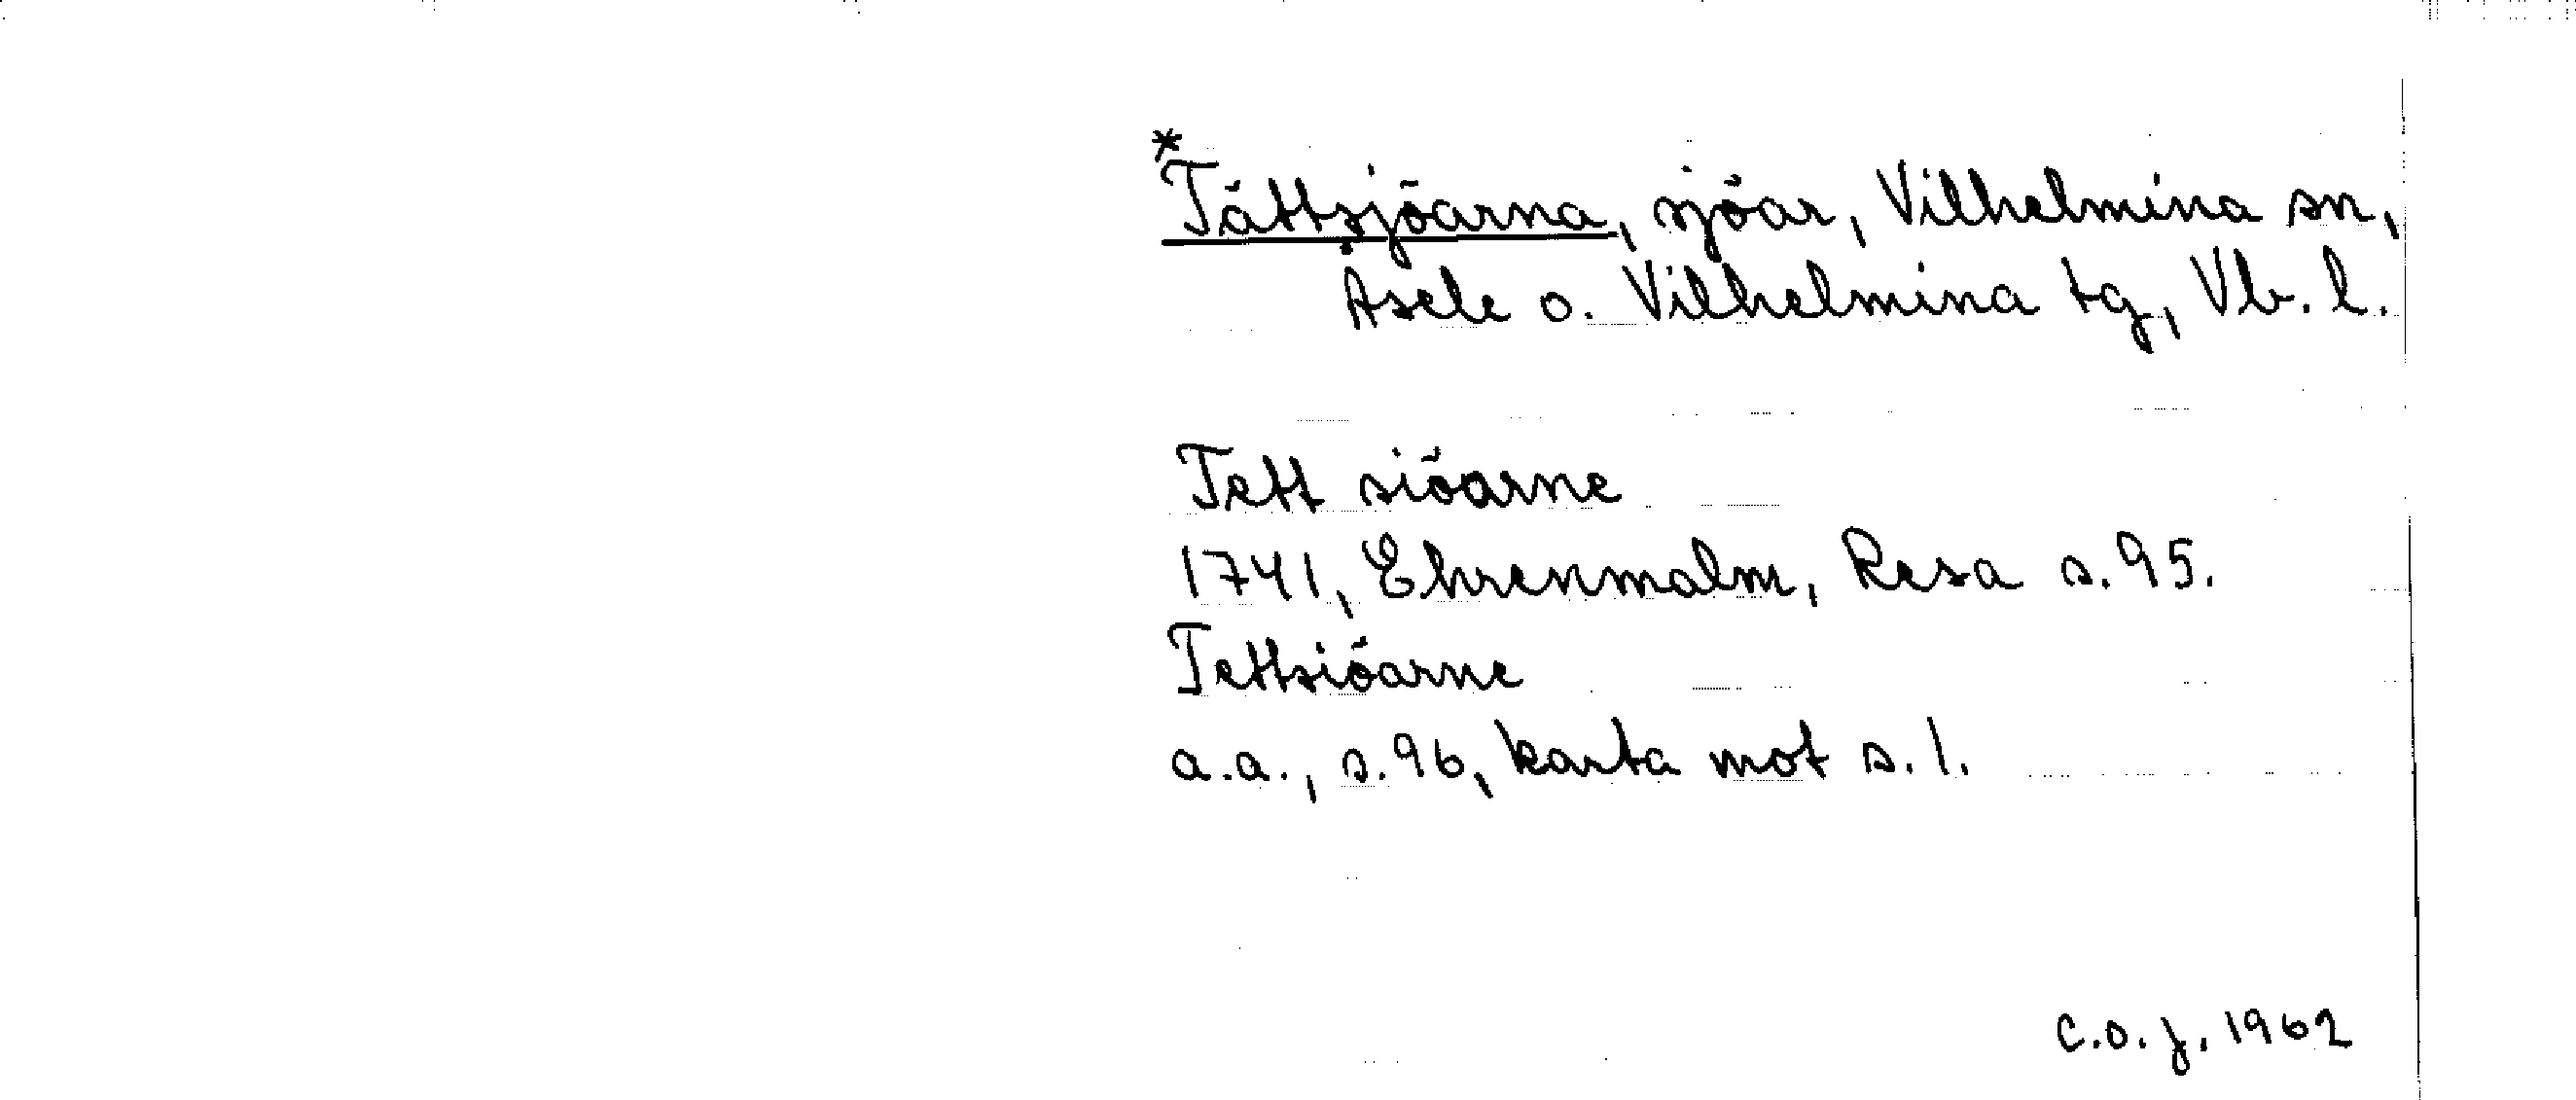 *Tättsjöarna, sjöar, Vilhelmina sn,
Åsele o. Vilhelmina tg, Vb. l.
Tett siöarne
1741, Ehrenmalm, Resa s. 95.
Tettsiöarne
a.a., s. 96, karta mot s. 1.
C.O.J. 1962